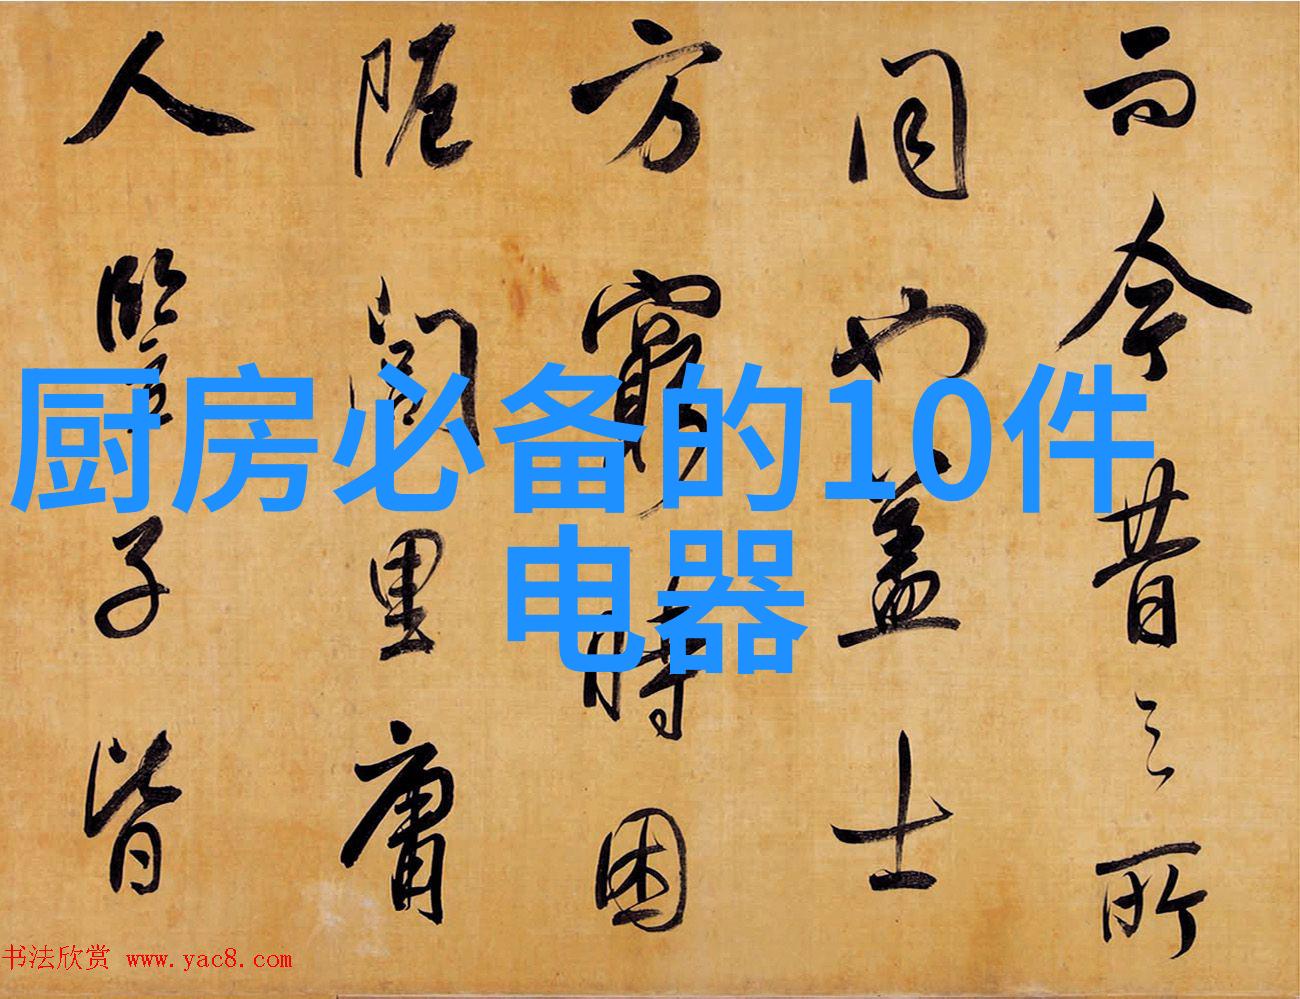 厨房必备的10件
电器
而今昔之所
同也盖士
方窮時困
阨閭里庸
人豎子皆
书法欣赏 www.yac8.com